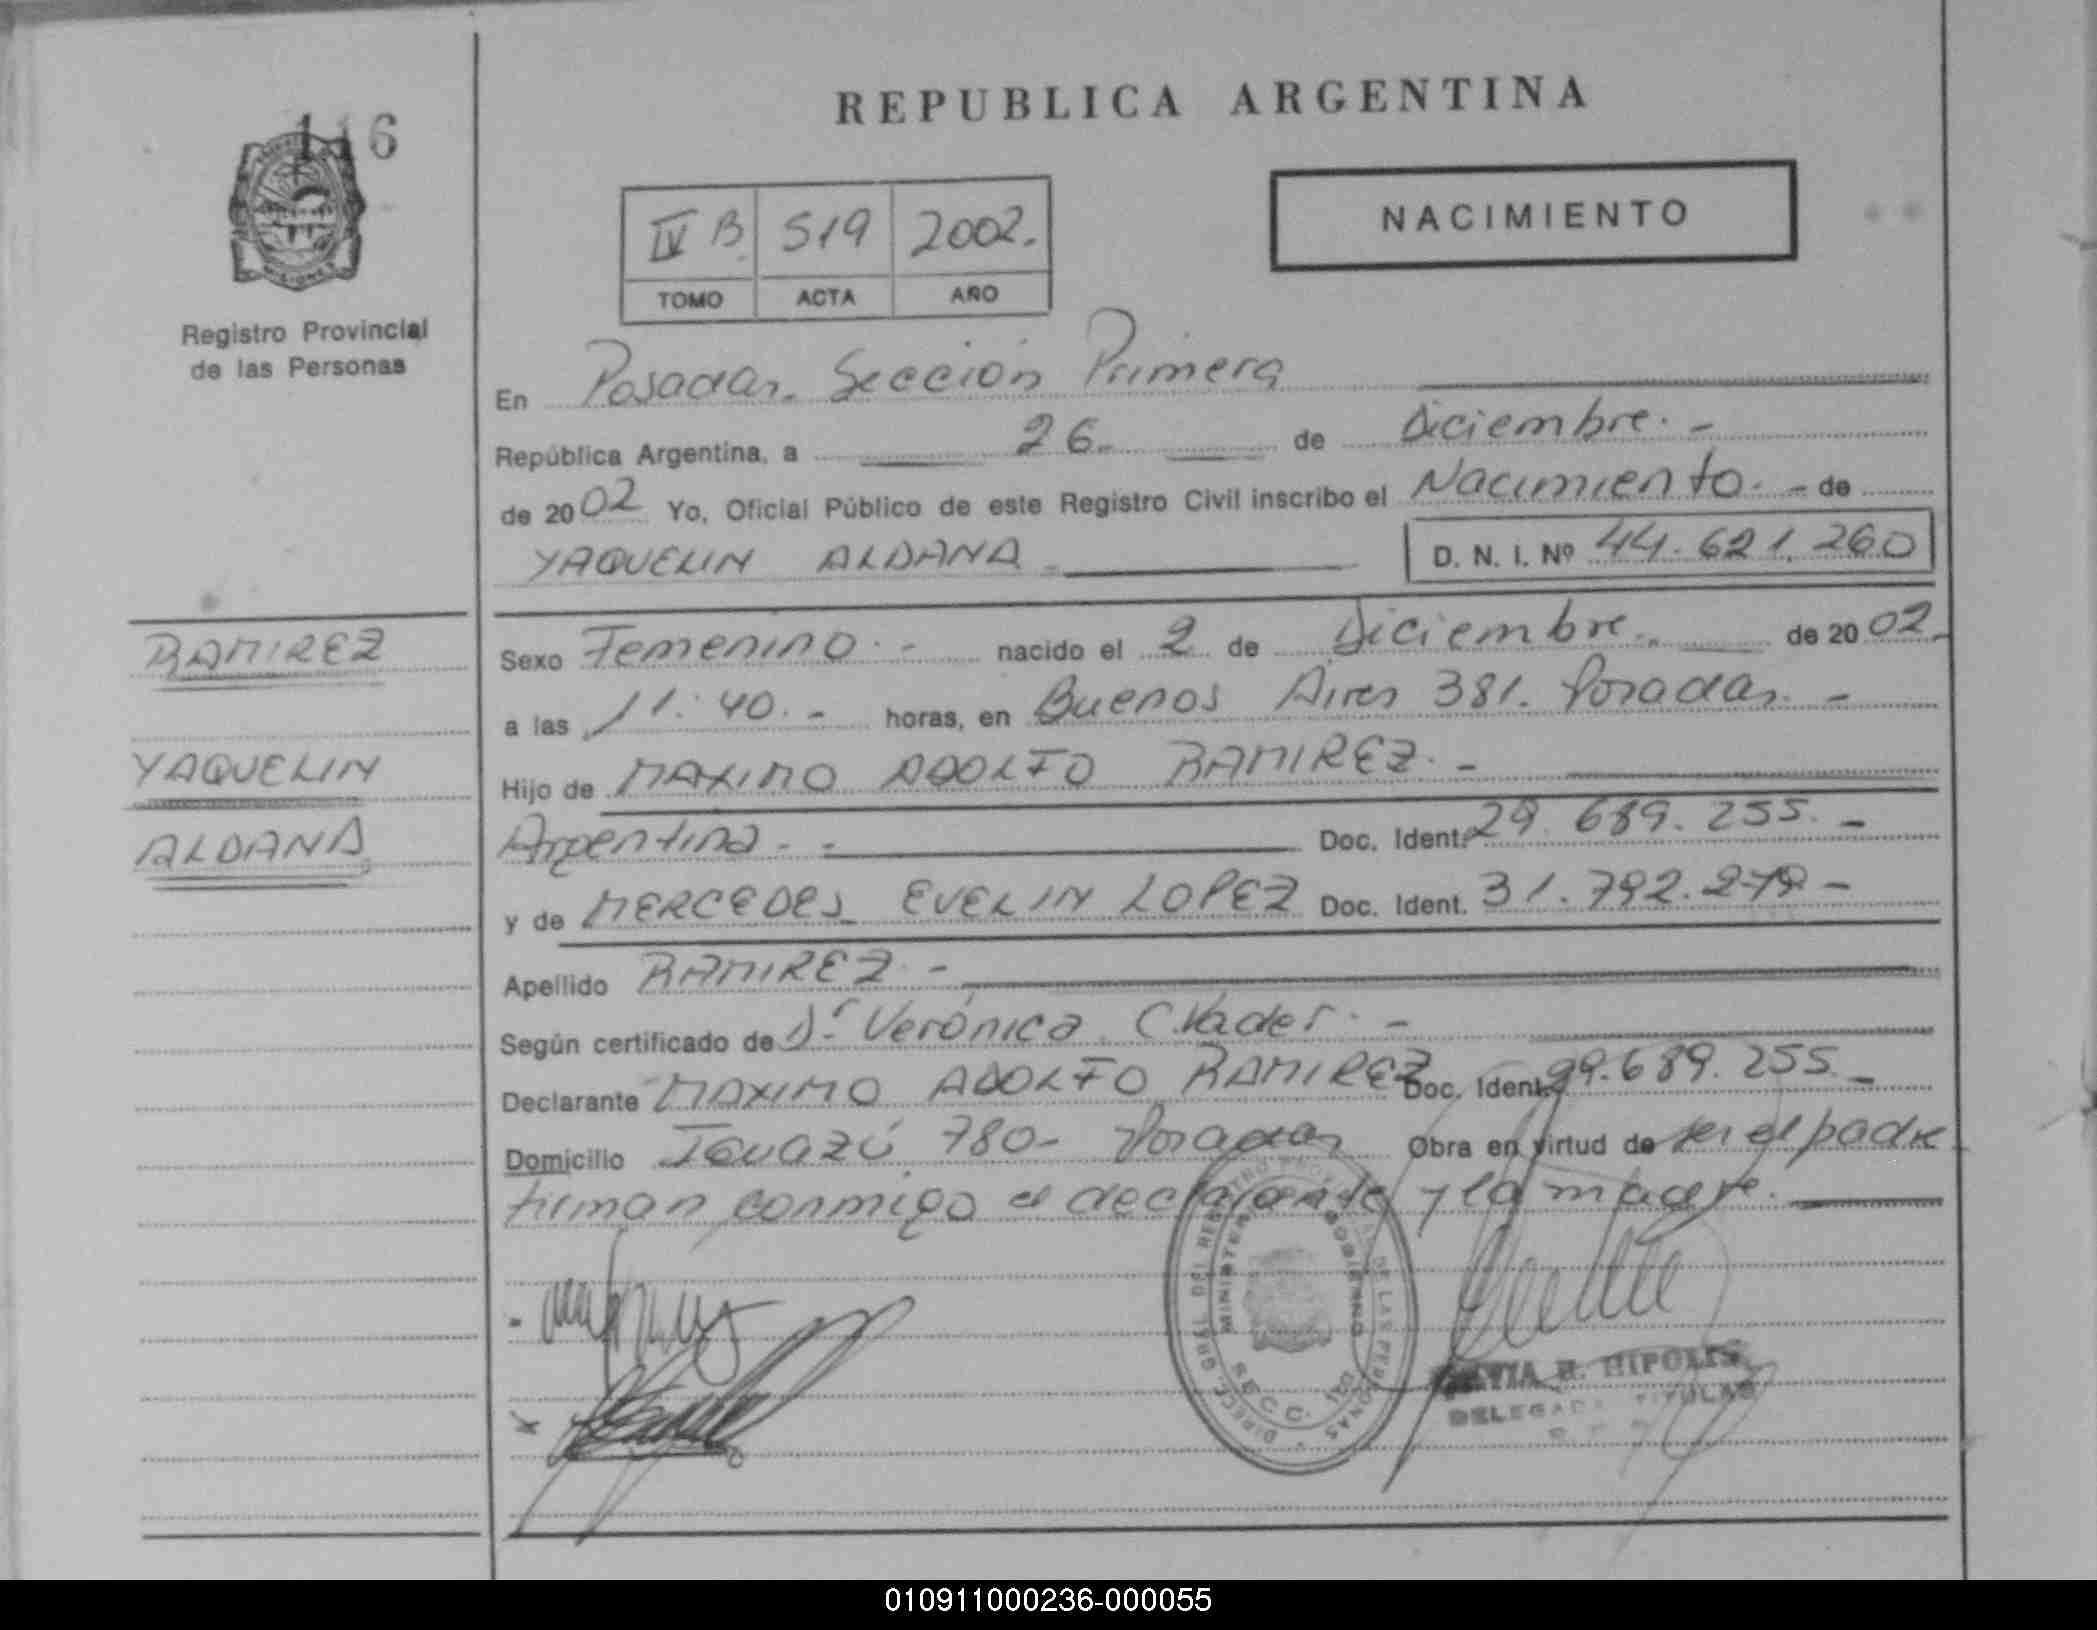 REPUBLICA ARGENTINA
116
NACIMIENTO
IV B. 519 2002.
TOMO ACTA AÑO
MISIONES
Registro Provincial
de las Personas
En Posadas. Sección Primera
República Argentina, a 26. de Diciembre. -
de 2002 Yo, Oficial Público de este Registro Civil inscribo el Nacimiento. - de
YAQUELIN ALDANA D. N. I. Nº 44.621.260
RAMIREZ
YAQUELIN
ALDANA
Sexo Femenino. - nacido el 2 de Diciembre. de 2002.
a las 11:40. - horas, en Buenos Aires 381. Posadas. -
Hijo de MAXIMO ADOLFO RAMIREZ. -
Argentina. - Doc. Ident. 29.689.255. -
y de MERCEDES EVELIN LOPEZ Doc. Ident. 31.792.279 -
Apellido RAMIREZ. -
Según certificado de Dr. Verónica
Declarante MAXIMO ADOLFO RAMIREZ Doc. Ident. 29.689.255. -
Domicilio IGUAZÚ 780- Posadas Obra en virtud de ser el padre
firman conmigo el declarante y la madre.
DIREC. GRAL. DEL REGISTRO PROVINCIAL DE LAS PERSONAS
MINISTERIO GOBIERNO
SECC. 1
H. HIPOLIS
DELEGADA TITULAR
010911000236-000055